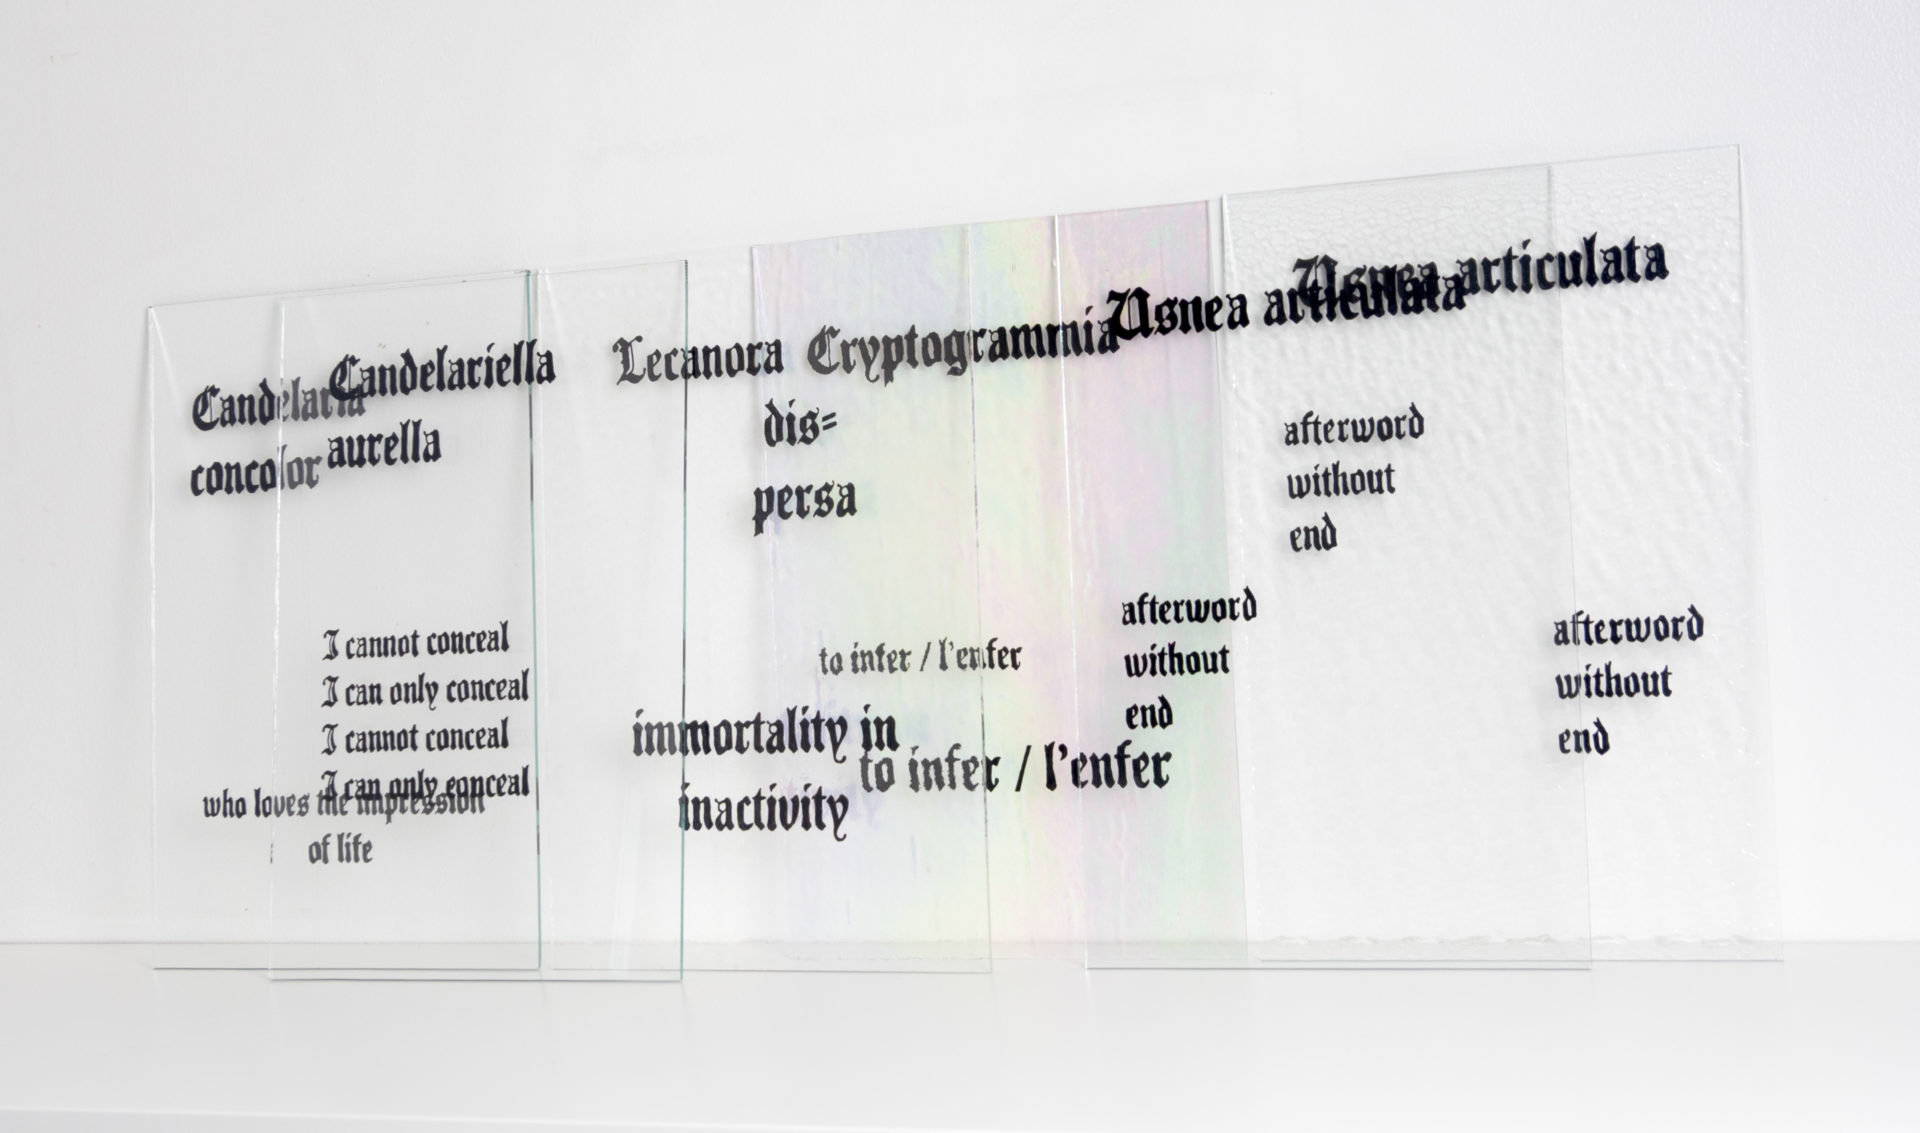 Candelaria
concolor
Candelariella
aurella
I cannot conceal
I can only conceal
I cannot conceal
I can only conceal
who loves the impression
of life
Lecanora
dis=
persa
immortality in
inactivity
Cryptogrammia
to infer / l'enfer
to infer / l'enfer
Usnea articulata
afterword
without
end
Usnea articulata
afterword
without
end
afterword
without
end